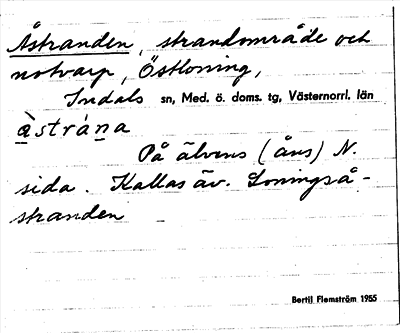 Åstranden, strandområde och
notvarp, Östloning,
Indals sn, Med. ö. doms. tg, Västernorrl. län
àstrána
På älvens (åns) N.
sida. Kallas äv. Loningså-
stranden
Bertil Flemström 1955